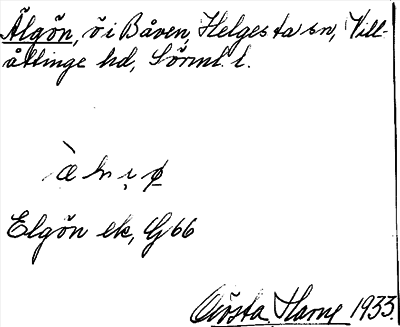 Älgön, ö i Båven, Helgesta sn, Vill-
åttinge hd, Sörml. l.
Elgön ek, G 66
Gösta Harne 1933.